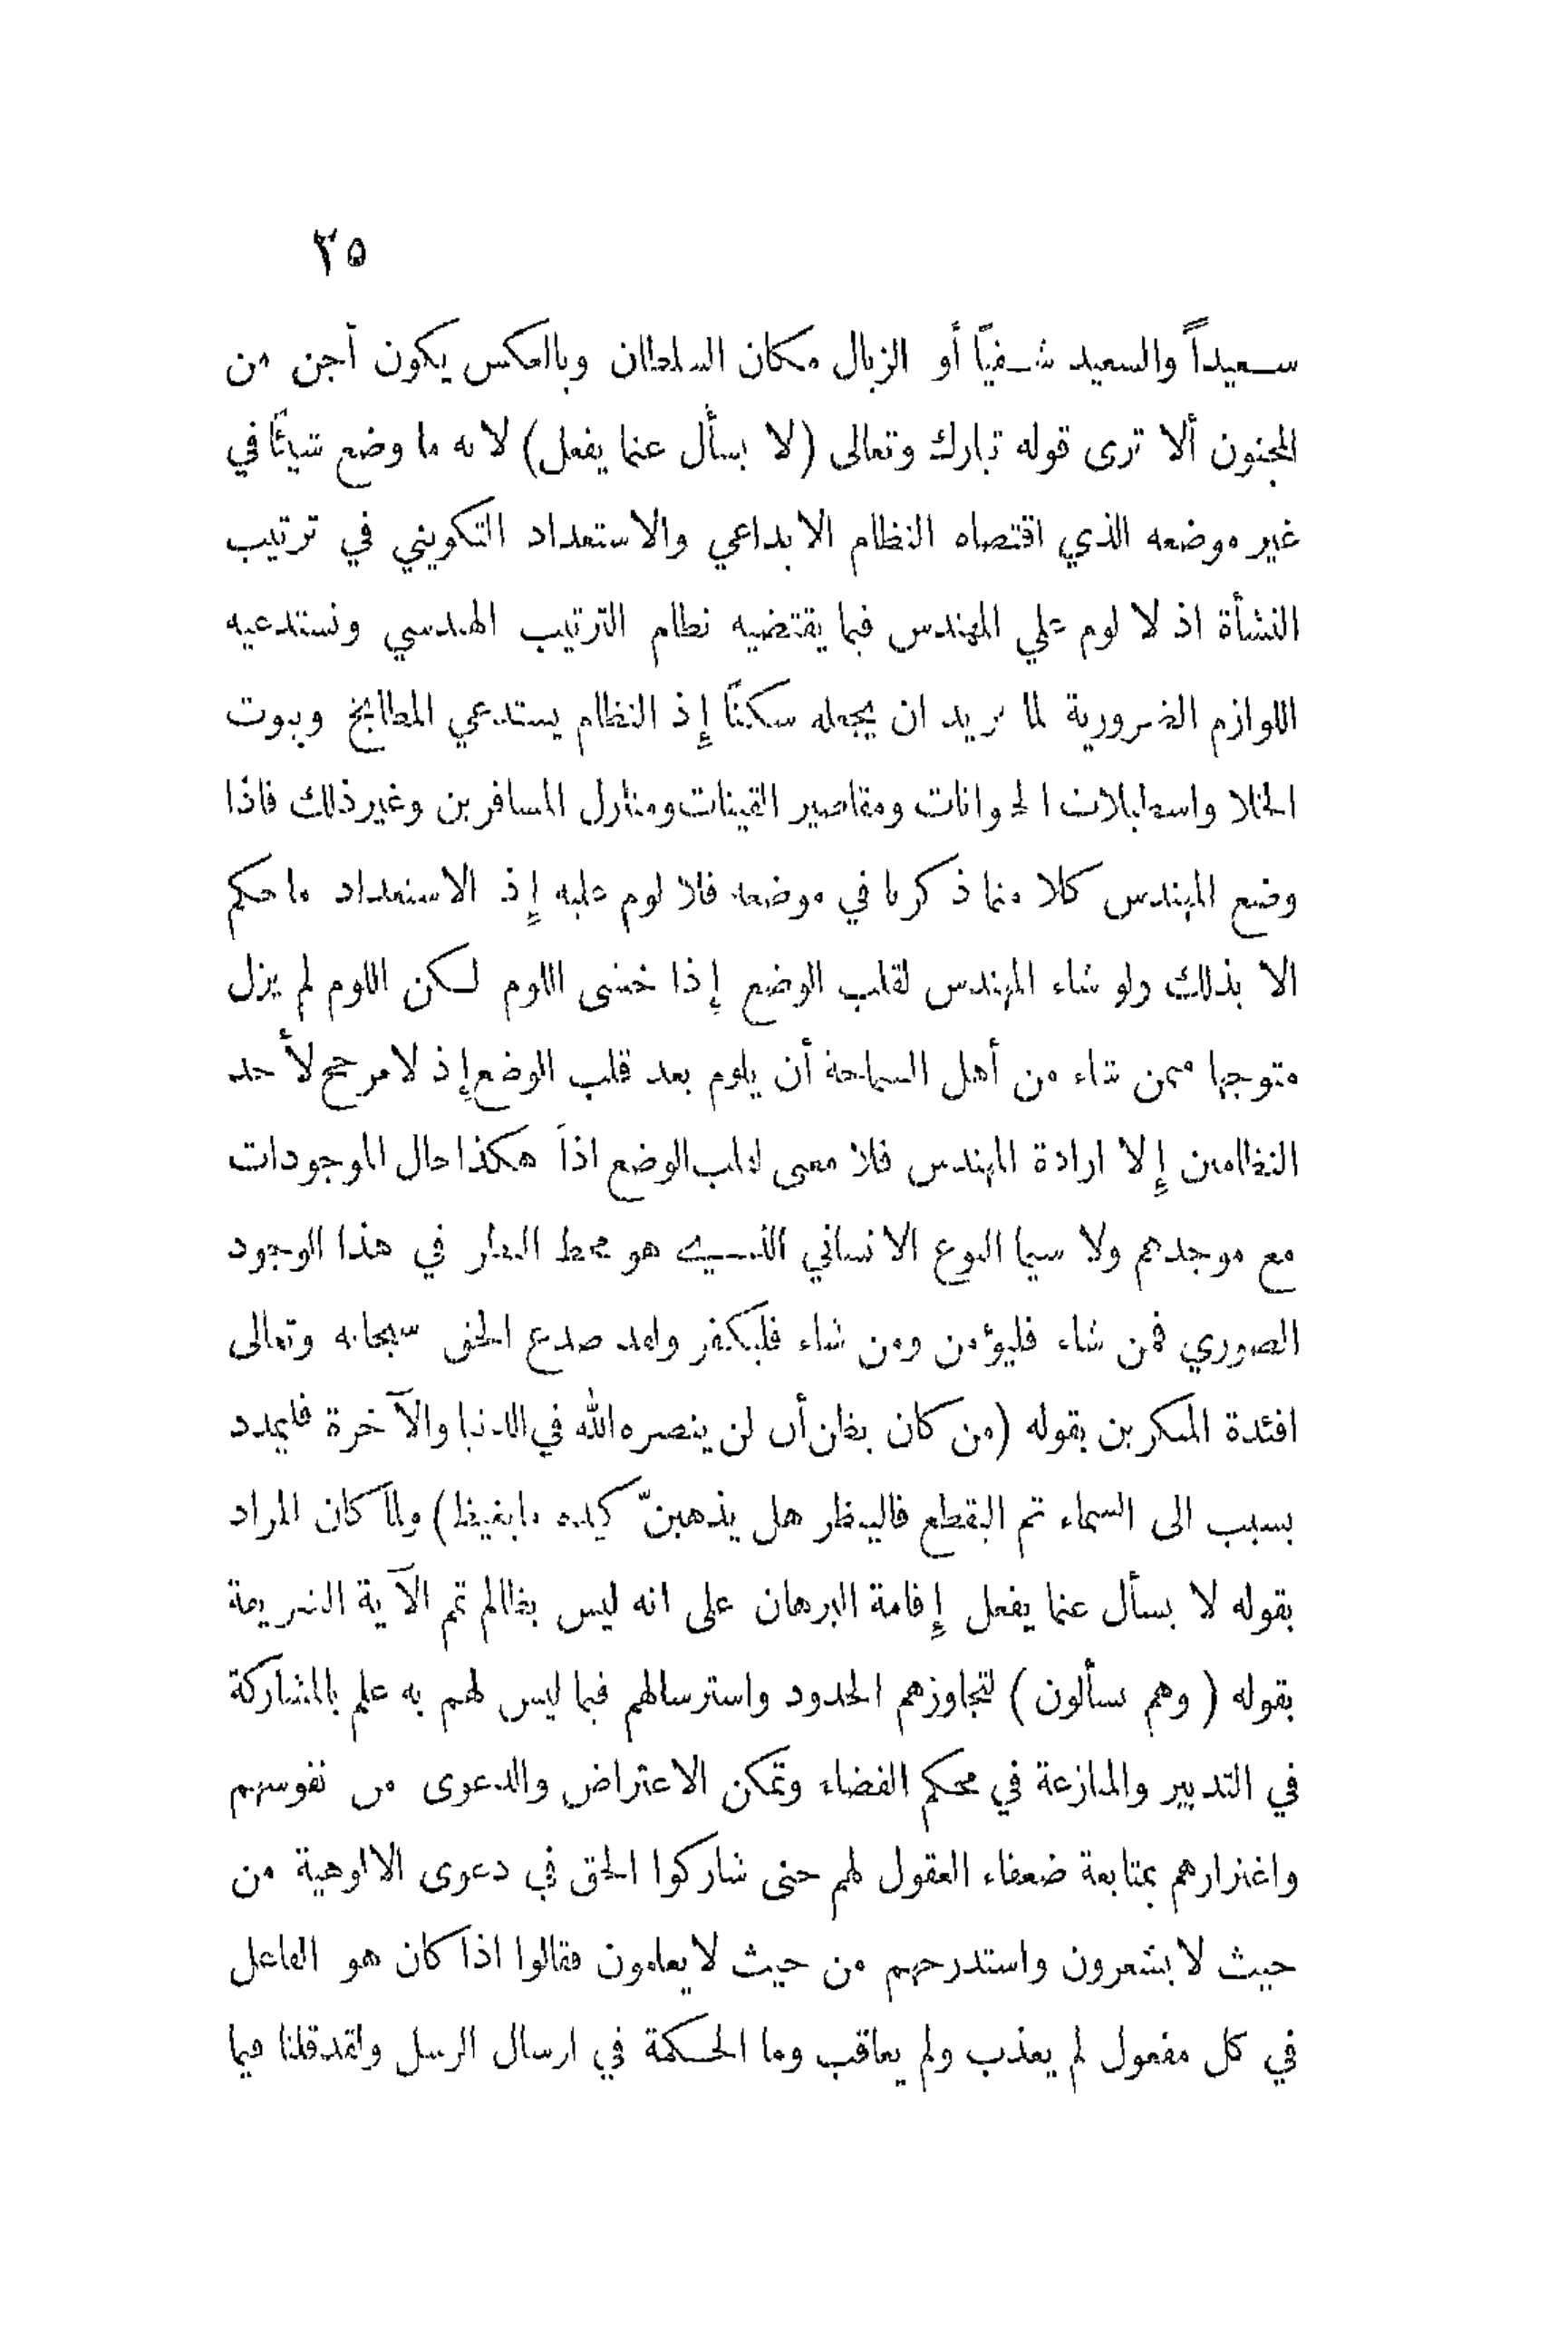 ٢٥
سعيداً والسعيد شقيًا أو الزبال مكان السلطان وبالعكس يكون أجن من
المجنون ألا ترى قوله تبارك وتعالى (لا يسأل عما يفعل) لانه ما وضع شيئًا في
غير موضعه الذي اقتضاه النظام الابداعي والاستعداد التكويني في ترتيب
النشأة اذ لا لوم علي المهندس فيما يقتضيه نظام الترتيب الهندسي وتستدعيه
اللوازم الضرورية لما يريد ان يجعله سكنًا إذ النظام يستدعي المطابخ وبيوت
الخلا واسطبلات الحوانات ومقاصير القينات ومنازل المسافرين وغير ذلك فاذا
وضع المهندس كلا مما ذكرنا في موضعه فلا لوم عليه إذ الاستعداد ما حكم
الا بذلك ولو شاء المهندس لقلب الوضع إذا خشى اللوم لكن اللوم لم يزل
متوجها ممن شاء من أهل السماحة أن يلوم بعد قلب الوضع إذ لا مرجح لأحد
النظامين إلا ارادة المهندس فلا معنى لقلب الوضع اذاً هكذا حال الموجودات
مع موجدهم ولا سيما النوع الانساني الذي هو محط النظر في هذا الوجود
الصوري فمن شاء فليؤمن ومن شاء فليكفر ولقد صدع الحق سبحانه وتعالى
افئدة المنكرين بقوله (من كان يظن أن لن ينصره الله في الدنيا والآخرة فليمدد
بسبب الى السماء ثم ليقطع فلينظر هل يذهبنّ كيده ما يغيظ) ولما كان المراد
بقوله لا يسأل عما يفعل إقامة البرهان على انه ليس بظالم تمم الآية الشريفة
بقوله (وهم يسألون) لتجاوزهم الحدود واسترسالهم فيما ليس لهم به علم بالمشاركة
في التدبير والمنازعة في محكم القضاء وتمكن الاعتراض والدعوى من نفوسهم
واغترارهم بمتابعة ضعفاء العقول لهم حتى شاركوا الحق في دعوى الالوهية من
حيث لا يشعرون واستدرجهم من حيث لا يعلمون فقالوا اذا كان هو الفاعل
في كل مفعول لم يعذب ولم يعاقب وما الحكمة في ارسال الرسل ولقد قلنا فيما